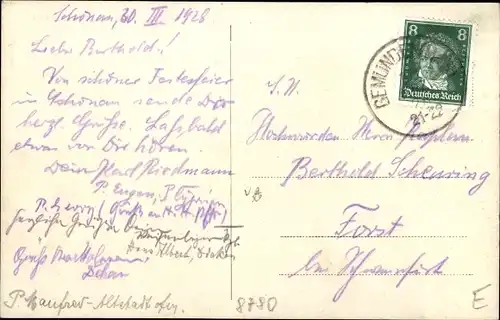 Schönau, 30. III 1928
Lieber Berthold!
Von schöner
in Schönau sende Dir
herzl. Grüße. Laß bald
etwas von Dir hören.
Dein Karl Riedmann
P. Eugen, P. Cyprian
P. Georg
herzliche Grüße
Albert, Diakon
Gruß
P. Manfred - Altstadt
8780
GEMÜNDEN
21-22
8 8
Deutsches Reich
S. H.
Hochwürden Herrn Kaplan
Berthold Scheuring
Forst
bei Schweinfurt
E